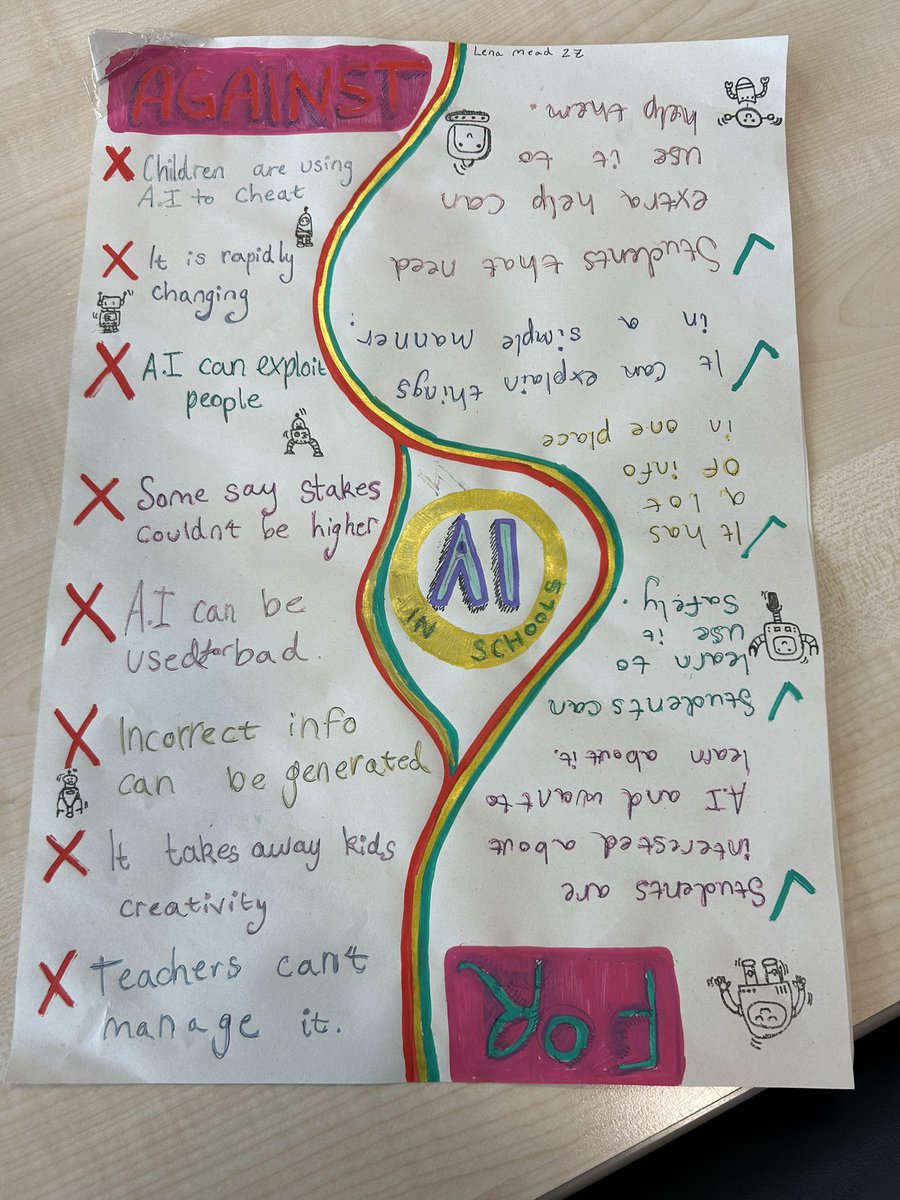 Lena Mead 2Z
AGAINST
Children are using
A.I to cheat
It is rapidly
changing
A.I can exploit
people
Some say stakes
couldn't be higher
A.I can be
used for bad.
Incorrect info
can be generated
It takes away kids
creativity
Teachers can't
manage it.
AI
IN SCHOOLS
FOR
Students are
interested about
A.I and want to
learn about it.
Students can
learn to
use it
safely.
It has
a lot
of info
in one place
It can explain things
in a simple manner.
Students that need
extra help can
use it to
help them.